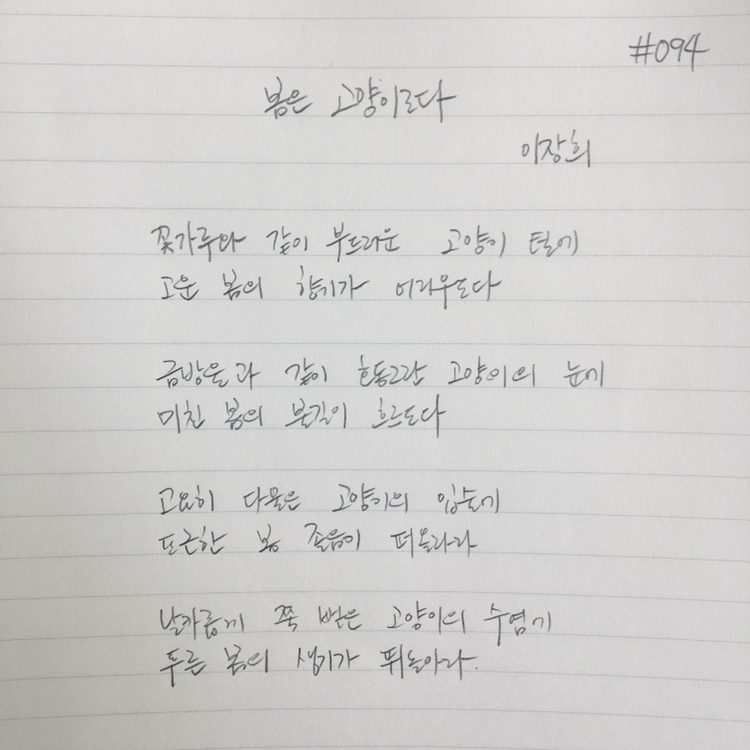 #094
봄은 고양이로다
이장희
꽃가루와 같이 부드러운 고양이 털에
고운 봄의 향기가 어리우도다
금방울과 같이 호동그란 고양이의 눈에
미친 봄의 불길이 흐르도다
고요히 다물은 고양이의 입술에
포근한 봄 졸음이 떠올라라
날카롭게 쭉 뻗은 고양이의 수염에
푸른 봄의 생기가 뛰놀아라.